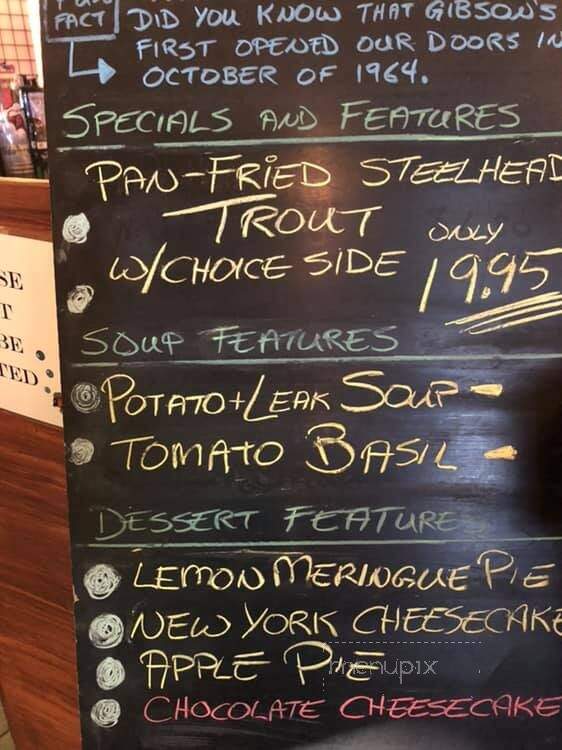 FACT DID YOU KNOW THAT GIBSON'S
FIRST OPENED OUR DOORS IN
OCTOBER OF 1964.
SPECIALS AND FEATURES
PAN-FRIED STEELHEAD
TROUT
W/CHOICE SIDE ONLY 19.95
SOUP FEATURES
POTATO+LEAK SOUP -
TOMATO BASIL -
DESSERT FEATURES
LEMON MERINGUE PIE
NEW YORK CHEESECAKE
APPLE PIE
menupix
CHOCOLATE CHEESECAKE